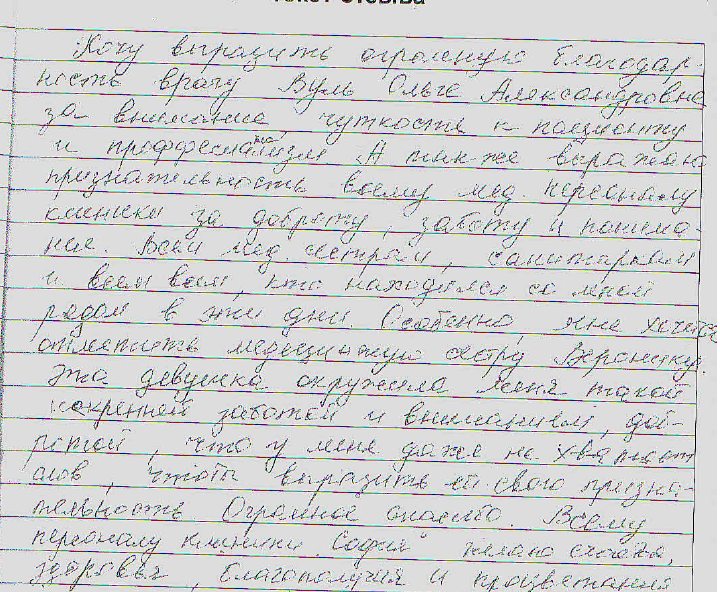 текст отзыва
Хочу выразить огромную благодар-
ность врачу Вуль Ольге Александровне
за внимание, чуткость к пациенту
и проффесианализм. А так-же выражаю
признательность всему мед. персоналу
клиники за доброту, заботу и понима-
ние. Всем мед. сёстрам, санитаркам
и всем всем, кто находился со мной
рядом в эти дни. Особенно, мне хочется
отметить медецинскую сестру Веронику.
Эта девушка окружила меня такой
искренней заботой и вниманием, доб-
ротой, что у меня даже не хватает
слов, чтобы выразить ей свою призна-
тельность. Огромное спасибо. Всему
персоналу клиники "София" желаю счастья,
здоровья, благополучия и процветания